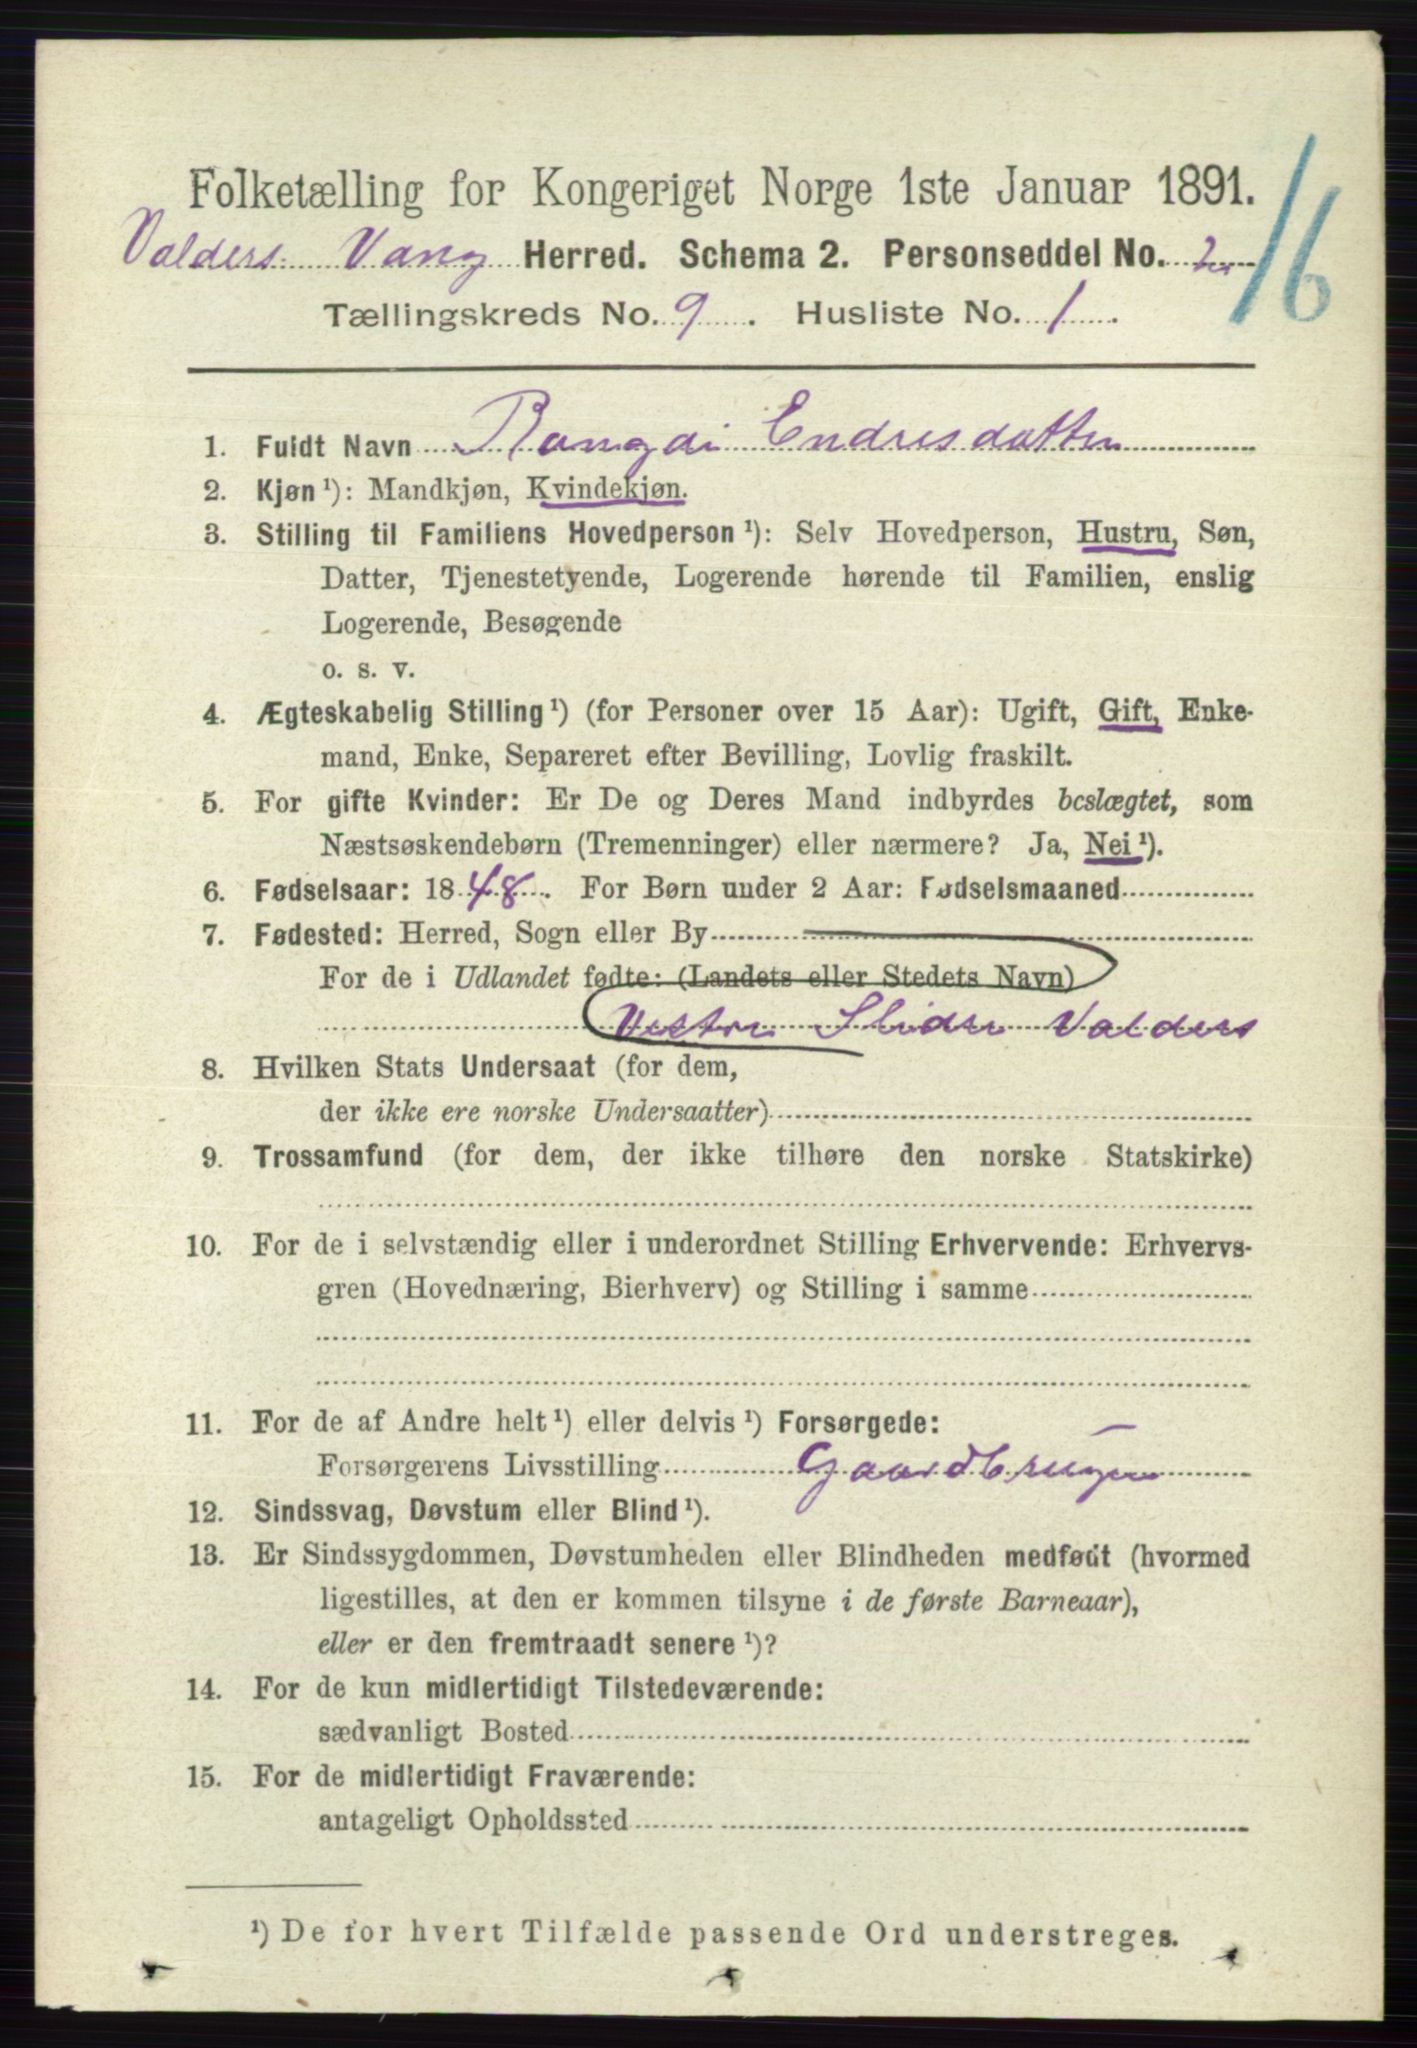 Folketælling for Kongeriget Norge 1ste Januar 1891.
16
Valders Vang Herred. Schema 2. Personseddel No. 2
Tællingskreds No. 9. Husliste No. 1.
1. Fuldt Navn Rangdi Endresdatter
2. Kjøn ¹): Mandkjøn, Kvindekjøn.
3. Stilling til Familiens Hovedperson ¹): Selv Hovedperson, Hustru, Søn,
Datter, Tjenestetyende, Logerende hørende til Familien, enslig
Logerende, Besøgende
o. s. v.
4. Ægteskabelig Stilling ¹) (for Personer over 15 Aar): Ugift, Gift, Enke-
mand, Enke, Separeret efter Bevilling, Lovlig fraskilt.
5. For gifte Kvinder: Er De og Deres Mand indbyrdes beslægtet, som
Næstsøskendebørn (Tremenninger) eller nærmere? Ja, Nei ¹).
6. Fødselsaar: 1848. For Børn under 2 Aar: Fødselsmaaned
7. Fødested: Herred, Sogn eller By
For de i Udlandet fødte: (Landets eller Stedets Navn)
Vestre Slidre Valders
8. Hvilken Stats Undersaat (for dem,
der ikke ere norske Undersaatter)
9. Trossamfund (for dem, der ikke tilhøre den norske Statskirke)
10. For de i selvstændig eller i underordnet Stilling Erhvervende: Erhvervs-
gren (Hovednæring, Bierhverv) og Stilling i samme
11. For de af Andre helt ¹) eller delvis ¹) Forsørgede:
Forsørgerens Livsstilling Gaardbruger
12. Sindssvag, Døvstum eller Blind ¹).
13. Er Sindssygdommen, Døvstumheden eller Blindheden medfødt (hvormed
ligestilles, at den er kommen tilsyne i de første Barneaar),
eller er den fremtraadt senere ¹)?
14. For de kun midlertidigt Tilstedeværende:
sædvanligt Bosted
15. For de midlertidigt Fraværende:
antageligt Opholdssted
¹) De for hvert Tilfælde passende Ord understreges.